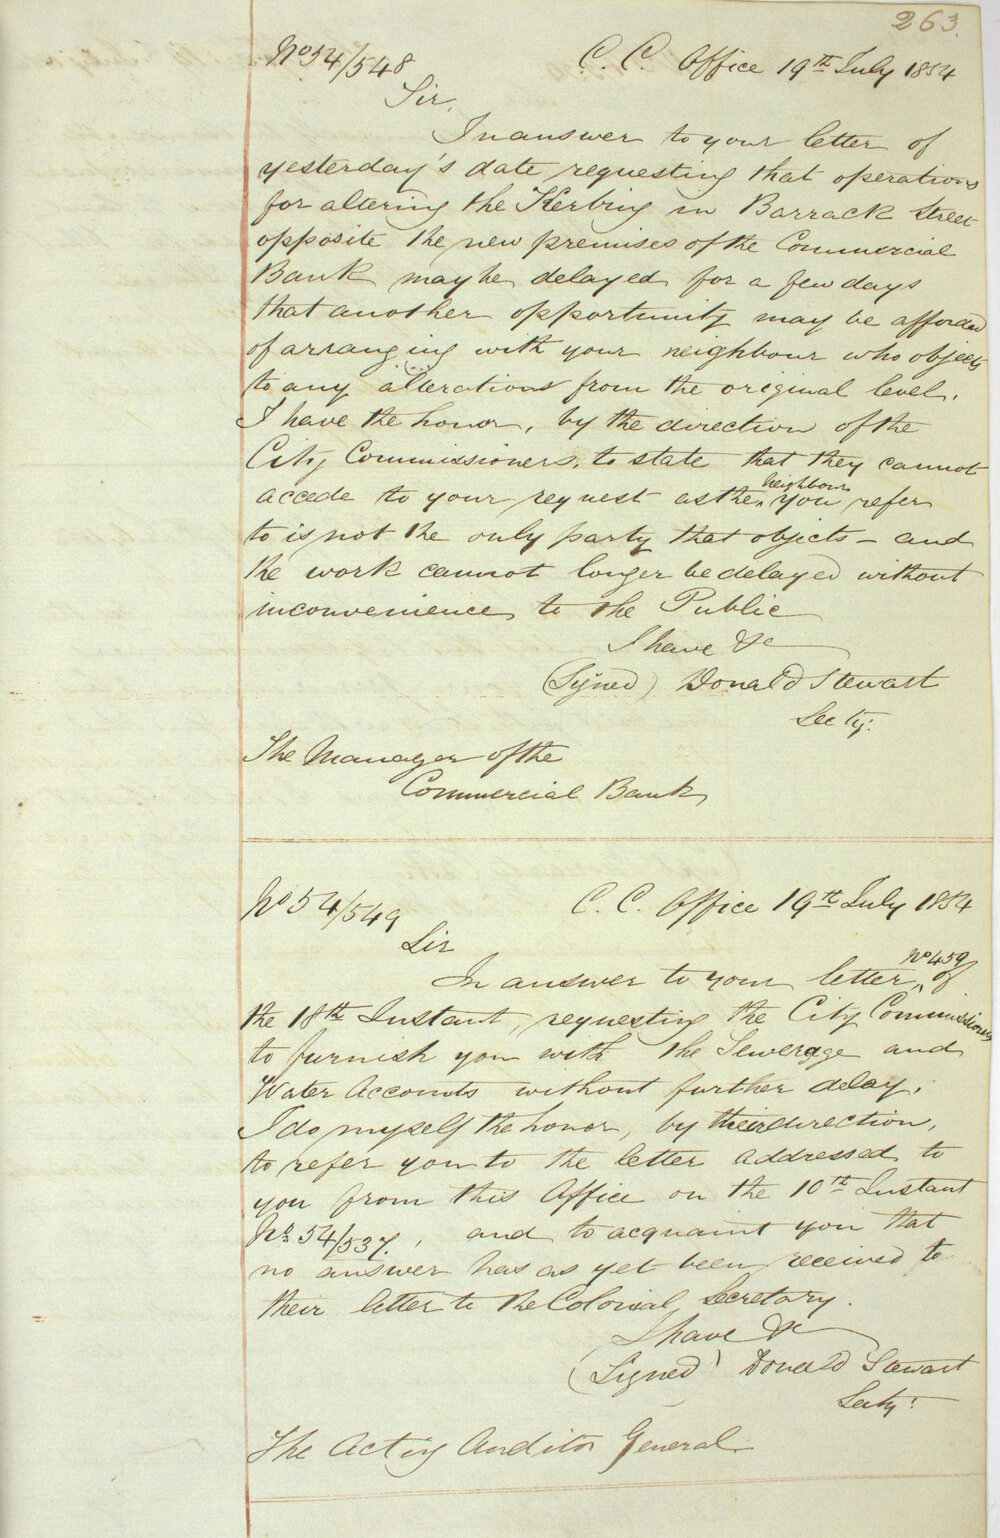 263.
No 54/548 C. C. Office 19th July 1854
Sir,
In answer to your letter of
yesterday's date requesting that operations
for altering the Kerbing in Barrack Street
opposite the new premises of the Commercial
Bank may be delayed for a few days
that another opportunity may be afforded
of arranging with your neighbour who objects
to any alterations from the original level.
I have the honor, by the direction of the
City Commissioners, to state that they cannot
neighbour
accede to your request as the you refer
to is not the only party that objects - and
the work cannot longer be delayed without
inconvenience to the Public
I have &c
(Signed) Donald Stewart
Secty:
The Manager of the
Commercial Bank
No 54/549 C. C. Office 19th July 1854
Sir
No 459
In answer to your letter of
the 18th Instant, requesting the City Commissioners
to furnish you with the Sewerage and
Water Accounts without further delay.
I do myself the honor, by their direction,
to refer you to the letter addressed to
you from this Office on the 10th Instant
No. 54/537., and to acquaint you that
no answer has as yet been received to
their letter to the Colonial Secretary.
I have &c
(Signed) Donald Stewart
Secty:
The Acting Auditor General